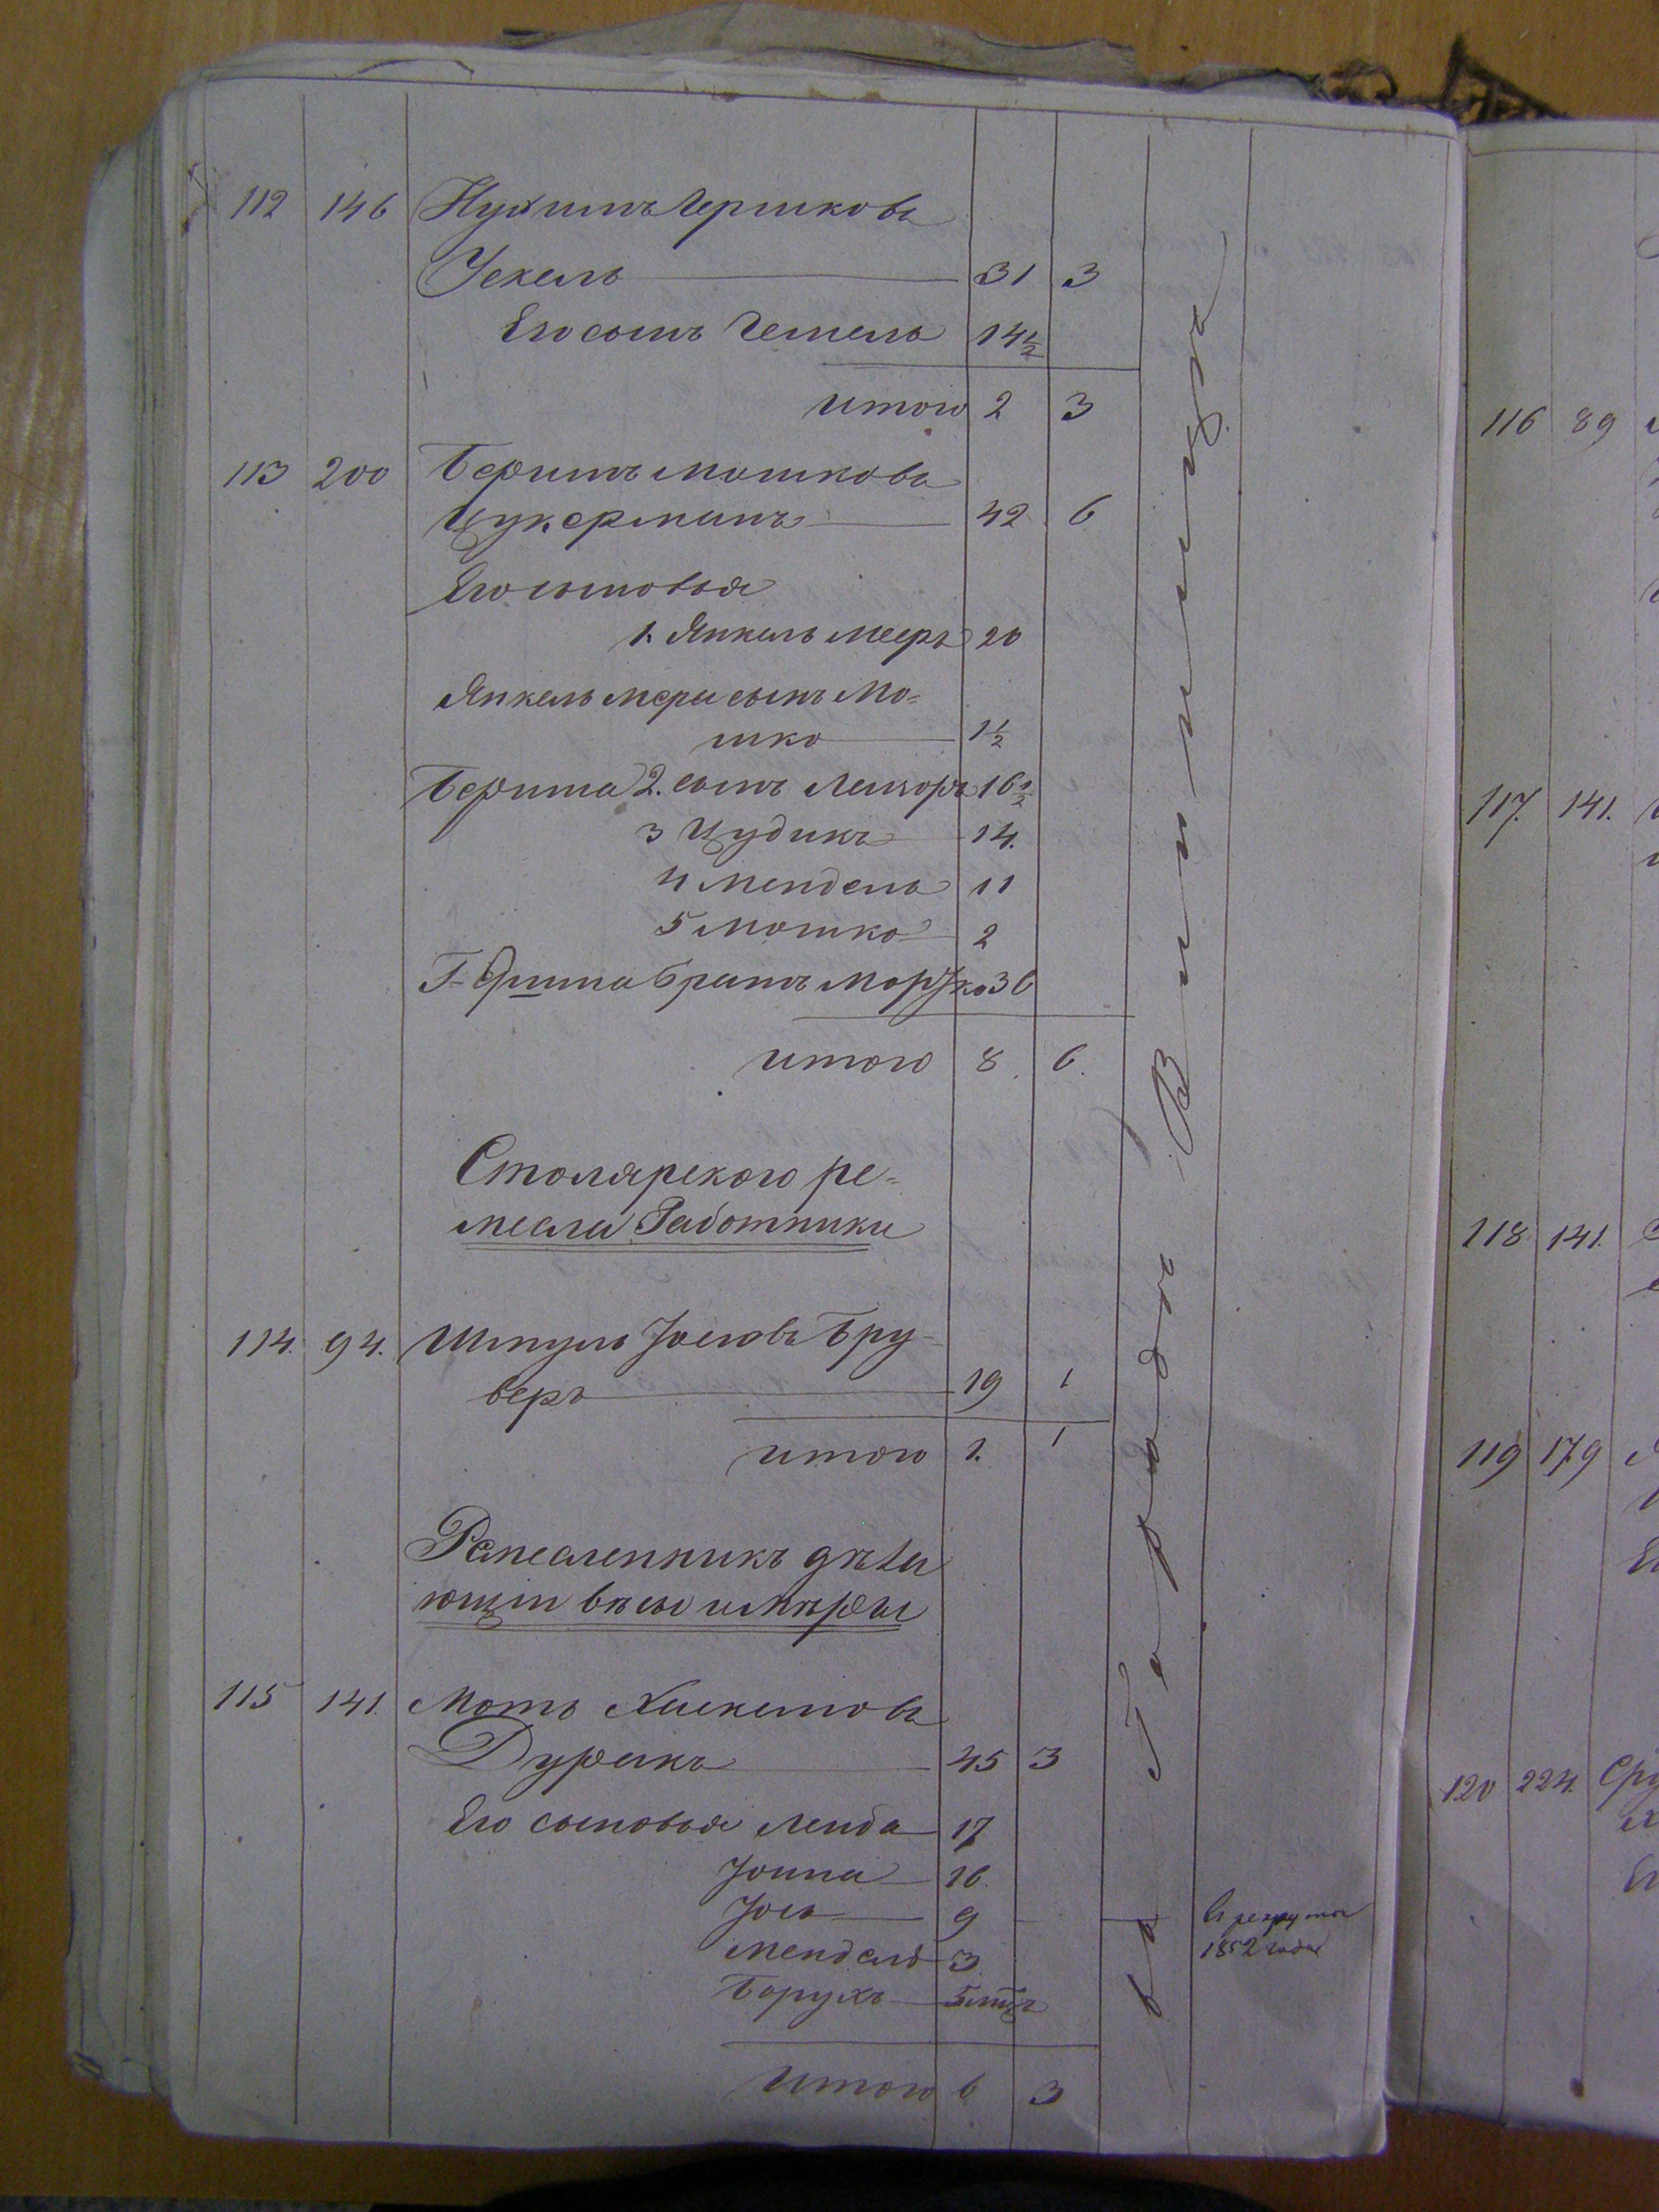 112 146 Нухимъ Гершковъ
Ухель 31 3
Его сынъ Гешель 14 1/2
итого 2 3
113 200 Беришъ Мошковъ
Цукерманъ 42 6
Его сыновья
1. Янкель Мееръ 20
Янкель Мера сынъ Мо=
шко 1 1/2
Бериша 2. сынъ Лейзоръ 16 1/2
3 Цудикъ 14.
4 Мендель 11
5 Мошко 2
братъ Мордко 36
итого 8. 6.
Столярского ре=
месла Работники
114. 94. Шмуль Іосіовъ Бру-
веръ 19 1
итого 1. 1
Ремесленникъ дѣла
ющій вѣсы и мѣры
115 141. Мотъ Хаскелiовъ
Дурыкъ 45 3
Его сыновья Лейба 17
Іонна 16.
Іось 9
Мендель 3
Борухъ 5 мцъ
итого 6 3
въ Городѣ Винницѣ
въ рекруты
1852 года
116 89
117. 141.
118 141.
119 179
120 224.